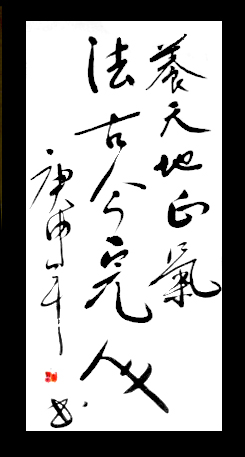 養天地正氣
法古今完人
庚申年
书